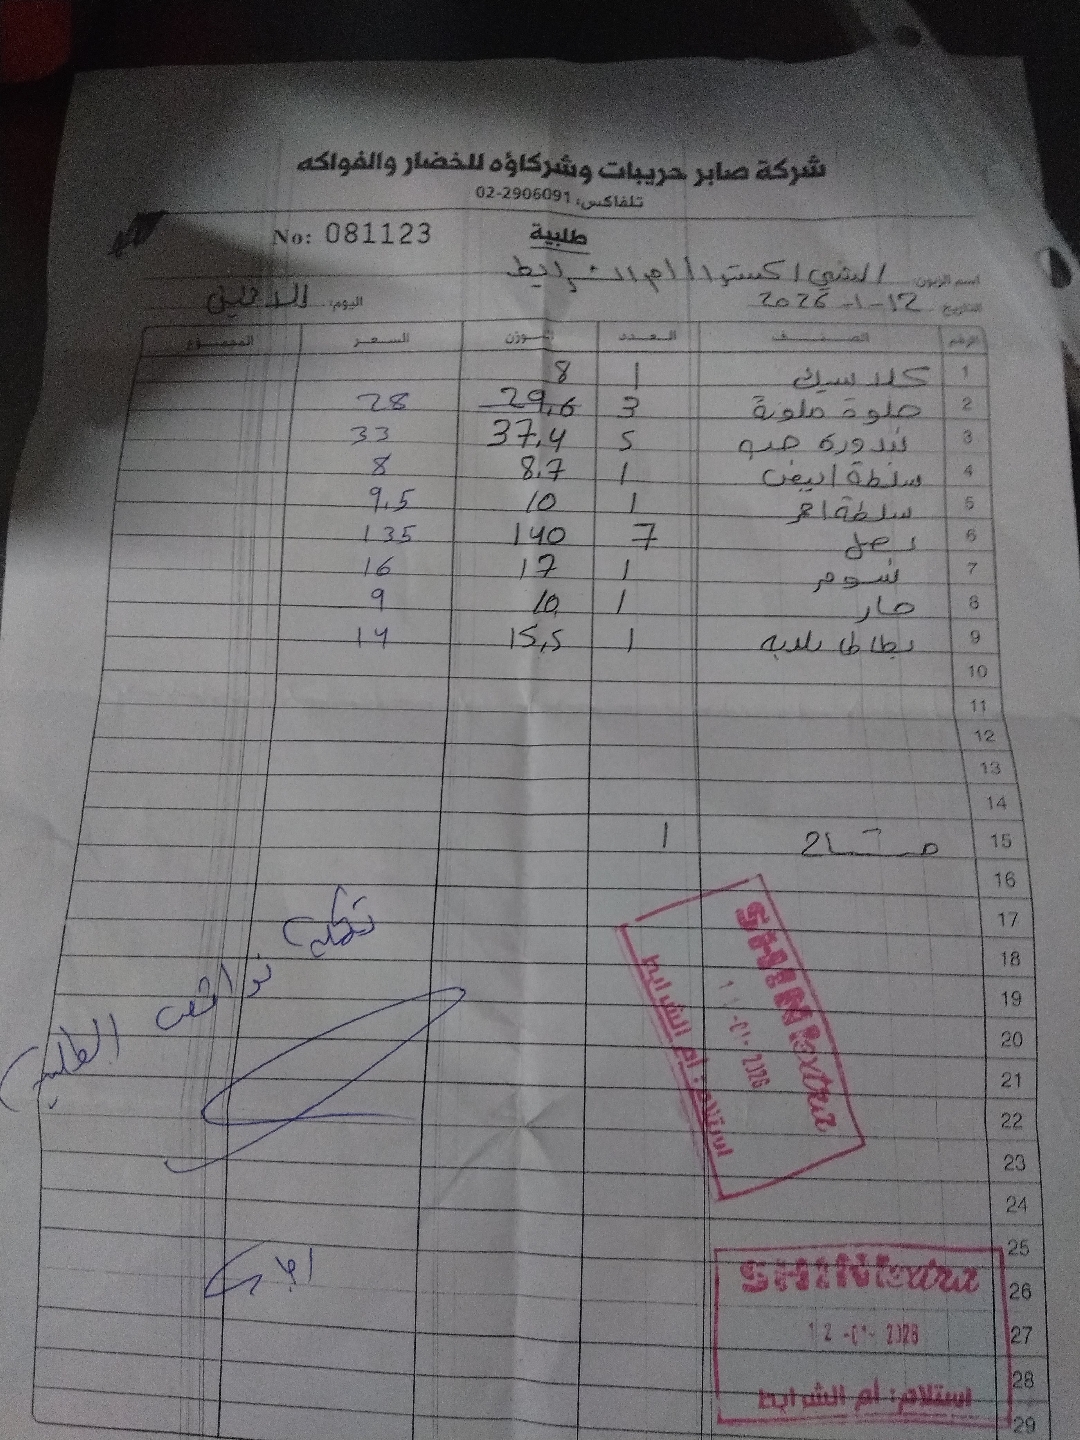 شركة صابر حريبات وشركاؤه للخضار والفواكه
تلفاكس: 02-2906091
طلبية
No: 081123
اسم الزبون: الشني اكسترا / ام الشرايط
التاريخ 12-1-2026 اليوم: الاثنين
الرقم الصنف العدد الوزن السعر المجموع
1 كلاسيك 1 8
2 حلوة ملونة 3 29,6 28
3 بندورة حب 5 37,4 33
4 سلطة ابيض 1 8.7 8
5 سلطة احمر 1 10 9,5
6 بصل 7 140 135
7 ثوم 1 17 16
8 حار 1 10 9
9 بطاطا بلديه 1 15,5 14
10
11
12
13
14
15 مشتاح 1
16
17
18
19
20
21
22
23
24
25
26
27
28
29
الطلبية
SHINIextra
-01- 2026
استلام: أم الشرايط
SHINIextra
12 -01- 2026
استلام: أم الشرايط